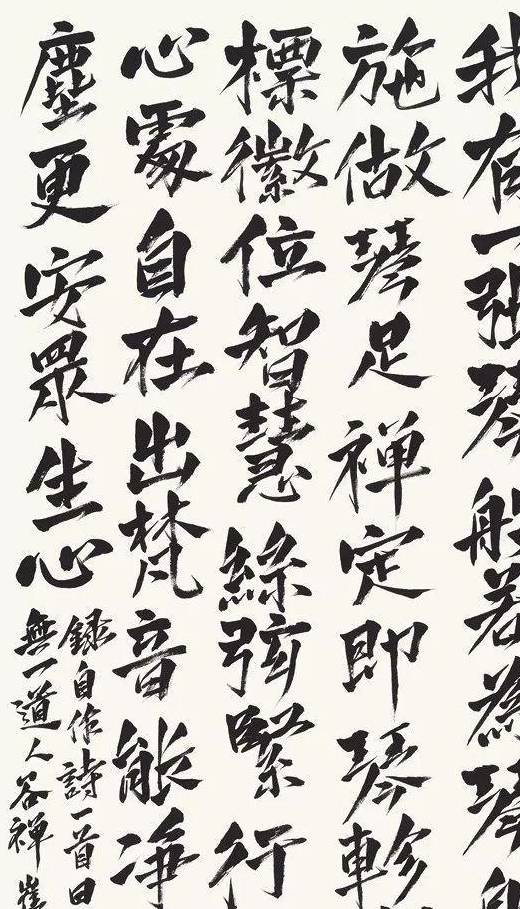 我有一張琴般若為琴
施做琴足禪定即琴軫
標徽位智慧絲弦緊行
心處自在出梵音能淨
塵更安眾生心
錄自作詩一首曰
無一道人谷禪崔